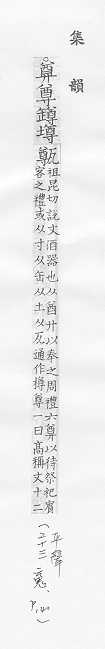 集韻
𢍜尊罇墫𤮐
祖昆切說文酒器也从酋廾以奉之周禮六尊以待祭祀賓
客之禮或从寸从缶从土从瓦通作樽尊一曰高稱文十二
平聲
(二十三魂、P.140)